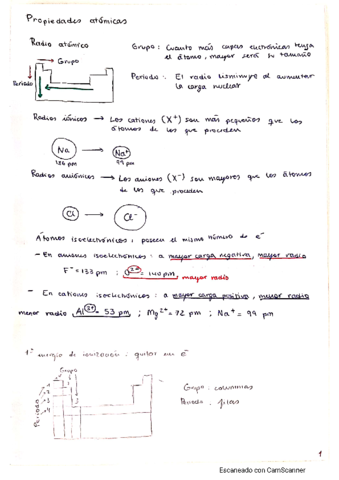 Propiedades atómicas
Radio atómico
Grupo
Periodo
Grupo: Cuantas más capas electrónicas tenga
el átomo, mayor será su tamaño
Periodo: El radio disminuye al aumentar
la carga nuclear
Radios iónicos → Los cationes (X⁺) son más pequeños que los
átomos de los que proceden
Na → Na⁺
186 pm 99 pm
Radios aniónicos → Los aniones (X⁻) son mayores que los átomos
de los que proceden
Cl → Cl⁻
Átomos isoelectrónicos: poseen el mismo número de e⁻
- En aniones isoelectrónicos: a mayor carga negativa, mayor radio
F⁻ = 133 pm ; O²⁻ = 140 pm, mayor radio
- En cationes isoelectrónicos: a mayor carga positiva, menor radio
menor radio, Al³⁺ = 53 pm ; Mg²⁺ = 72 pm ; Na⁺ = 99 pm
1ª energía de ionización: quitar un e⁻
Grupo
Periodo
Grupo: columnas
Periodo: filas
1
Escaneado con CamScanner